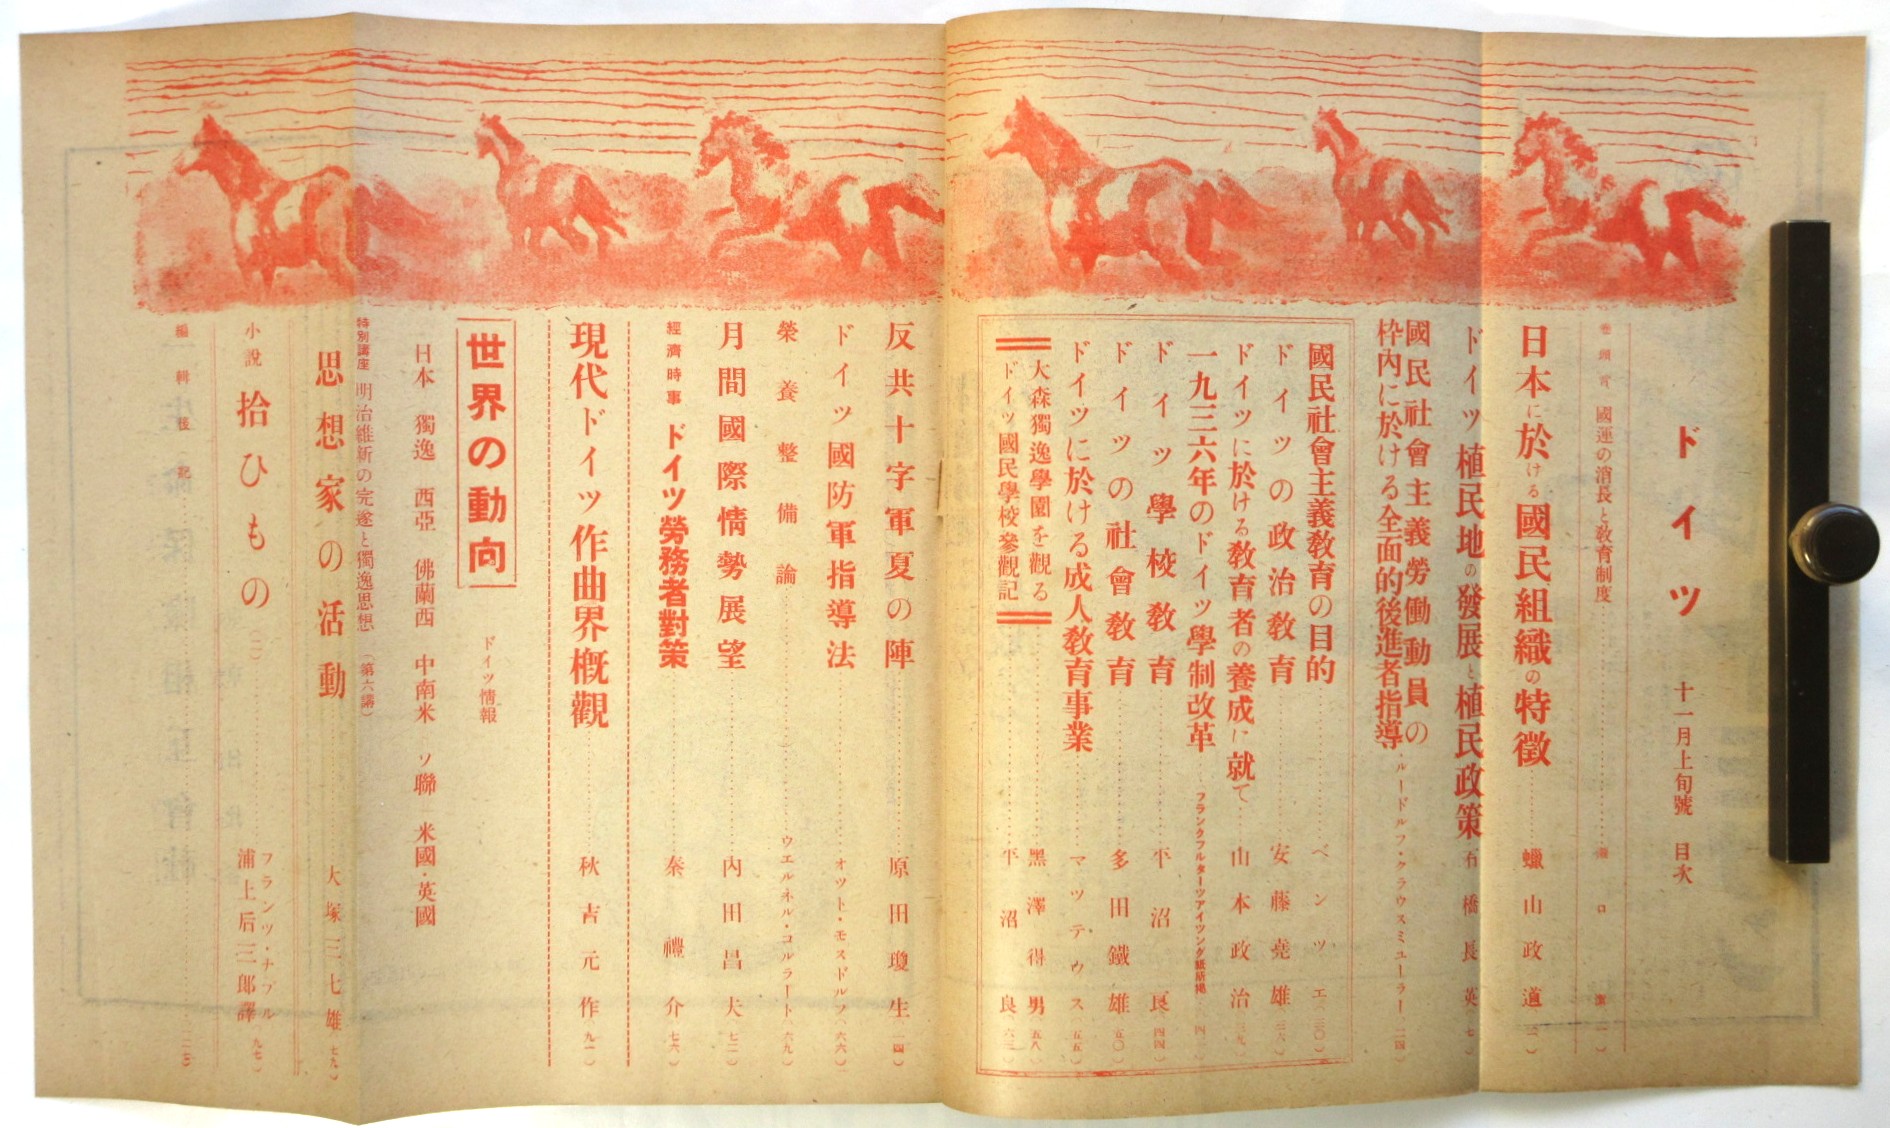 ドイツ 十一月上旬號 目次
卷頭言 國運の消長と教育制度
日本に於ける國民組織の特徴 蠟山政道
ドイツ植民地の發展と植民政策 石橋長英
國民社會主義勞働動員の
枠內に於ける全面的後進者指導 ルードルフ・クラウスミユーラー
國民社會主義教育の目的 ベンツエ
ドイツの政治教育 安藤堯雄
ドイツに於ける教育者の養成に就て 山本政治
一九三六年のドイツ學制改革 フランクフルターツアイツング紙所掲
ドイツ學校教育 平沼良
ドイツの社會教育 多田鐵雄
ドイツに於ける成人教育事業 マツテウス
大森獨逸學園を觀る 黑澤得男
ドイツ國民學校參觀記 平沼良
反共十字軍夏の陣 原田瓊生
ドイツ國防軍指導法 オツト・モスドルフ
榮養整備論 ウエルネル・コルラート
月間國際情勢展望 內田昌夫
經濟時事 ドイツ勞務者對策 秦禮介
現代ドイツ作曲界槪觀 秋吉元作
世界の動向 ドイツ情報
日本 獨逸 西亞 佛蘭西 中南米 ソ聯 米國・英國
特別講座 明治維新の完遂と獨逸思想 (第六講)
思想家の活動 大塚三七雄
小說 拾ひもの(二) フランツ・ナブル
浦上后三郎譯
編輯後記